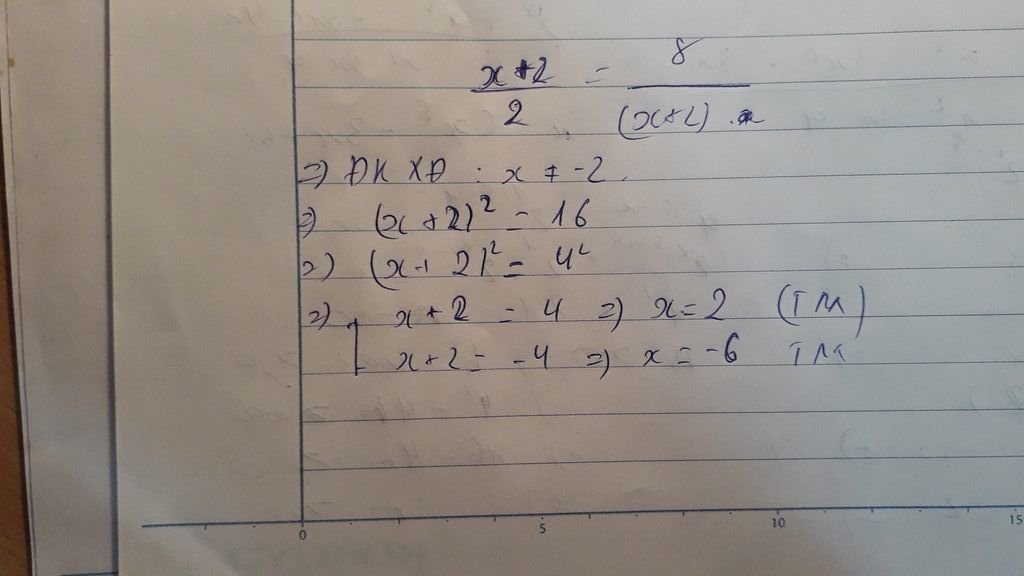 x+2/2 = 8/(x+2)
=> ĐKXĐ : x ≠ -2.
=> (x+2)² = 16
=> (x+2)² = 4²
=> [ x+2 = 4 => x = 2 (TM)
x+2 = -4 => x = -6 TM
0 5 10 15